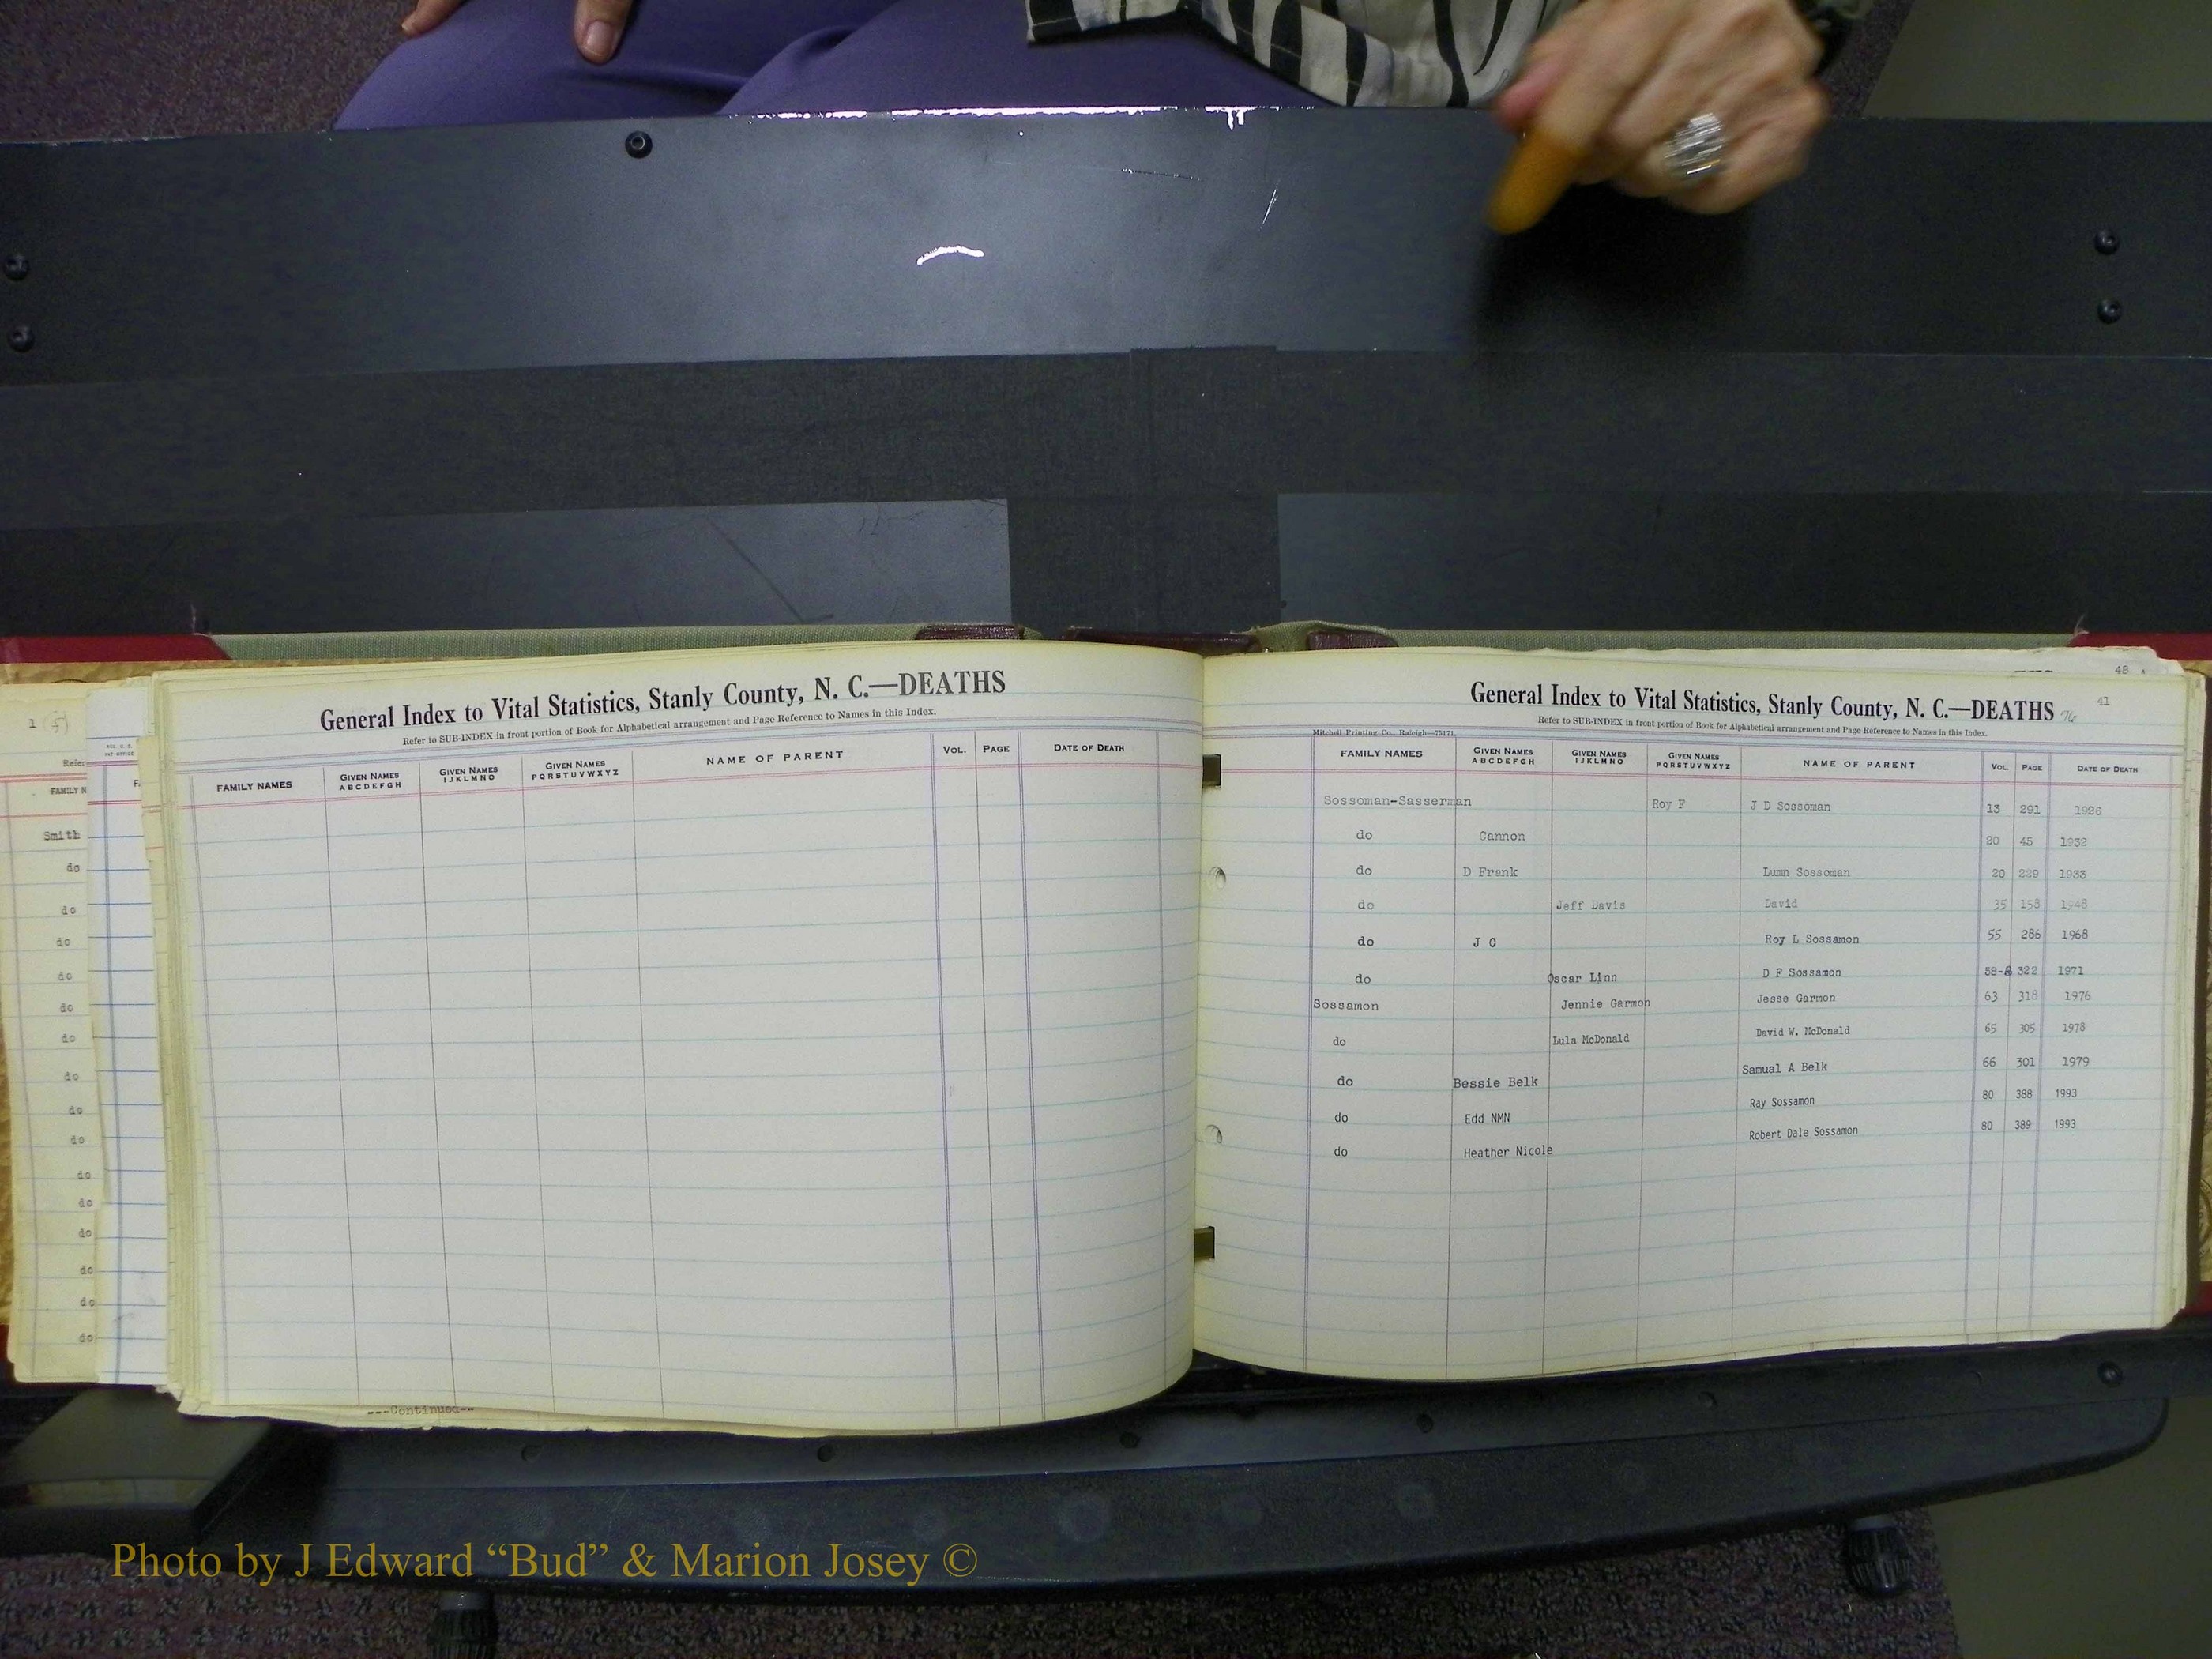 1 (5)
Refer
FAMILY N
Smith
do
do
do
do
do
do
do
do
do
do
do
do
do
do
do
General Index to Vital Statistics, Stanly County, N. C.—DEATHS
Refer to SUB-INDEX in front portion of Book for Alphabetical arrangement and Page Reference to Names in this Index.
FAMILY NAMES GIVEN NAMES ABCDEFGH GIVEN NAMES IJKLMNO GIVEN NAMES PQRSTUVWXYZ NAME OF PARENT VOL. PAGE DATE OF DEATH
---Continued--
48
41
General Index to Vital Statistics, Stanly County, N. C.—DEATHS
Refer to SUB-INDEX in front portion of Book for Alphabetical arrangement and Page Reference to Names in this Index.
Mitchell Printing Co., Raleigh—75171
FAMILY NAMES GIVEN NAMES ABCDEFGH GIVEN NAMES IJKLMNO GIVEN NAMES PQRSTUVWXYZ NAME OF PARENT VOL. PAGE DATE OF DEATH
Sossoman-Sasserman Roy F J D Sossoman 13 291 1926
do Cannon 20 45 1932
do D Frank Lumn Sossoman 20 229 1933
do Jeff Davis David 35 158 1948
do J C Roy L Sossamon 55 286 1968
do Oscar Linn D F Sossamon 322 1971
Sossamon Jennie Garmon Jesse Garmon 63 318 1976
do Lula McDonald David W. McDonald 65 305 1978
do Bessie Belk Samual A Belk 66 301 1979
do Edd NMN Ray Sossamon 80 388 1993
do Heather Nicole Robert Dale Sossamon 80 389 1993
Photo by J Edward “Bud” & Marion Josey ©